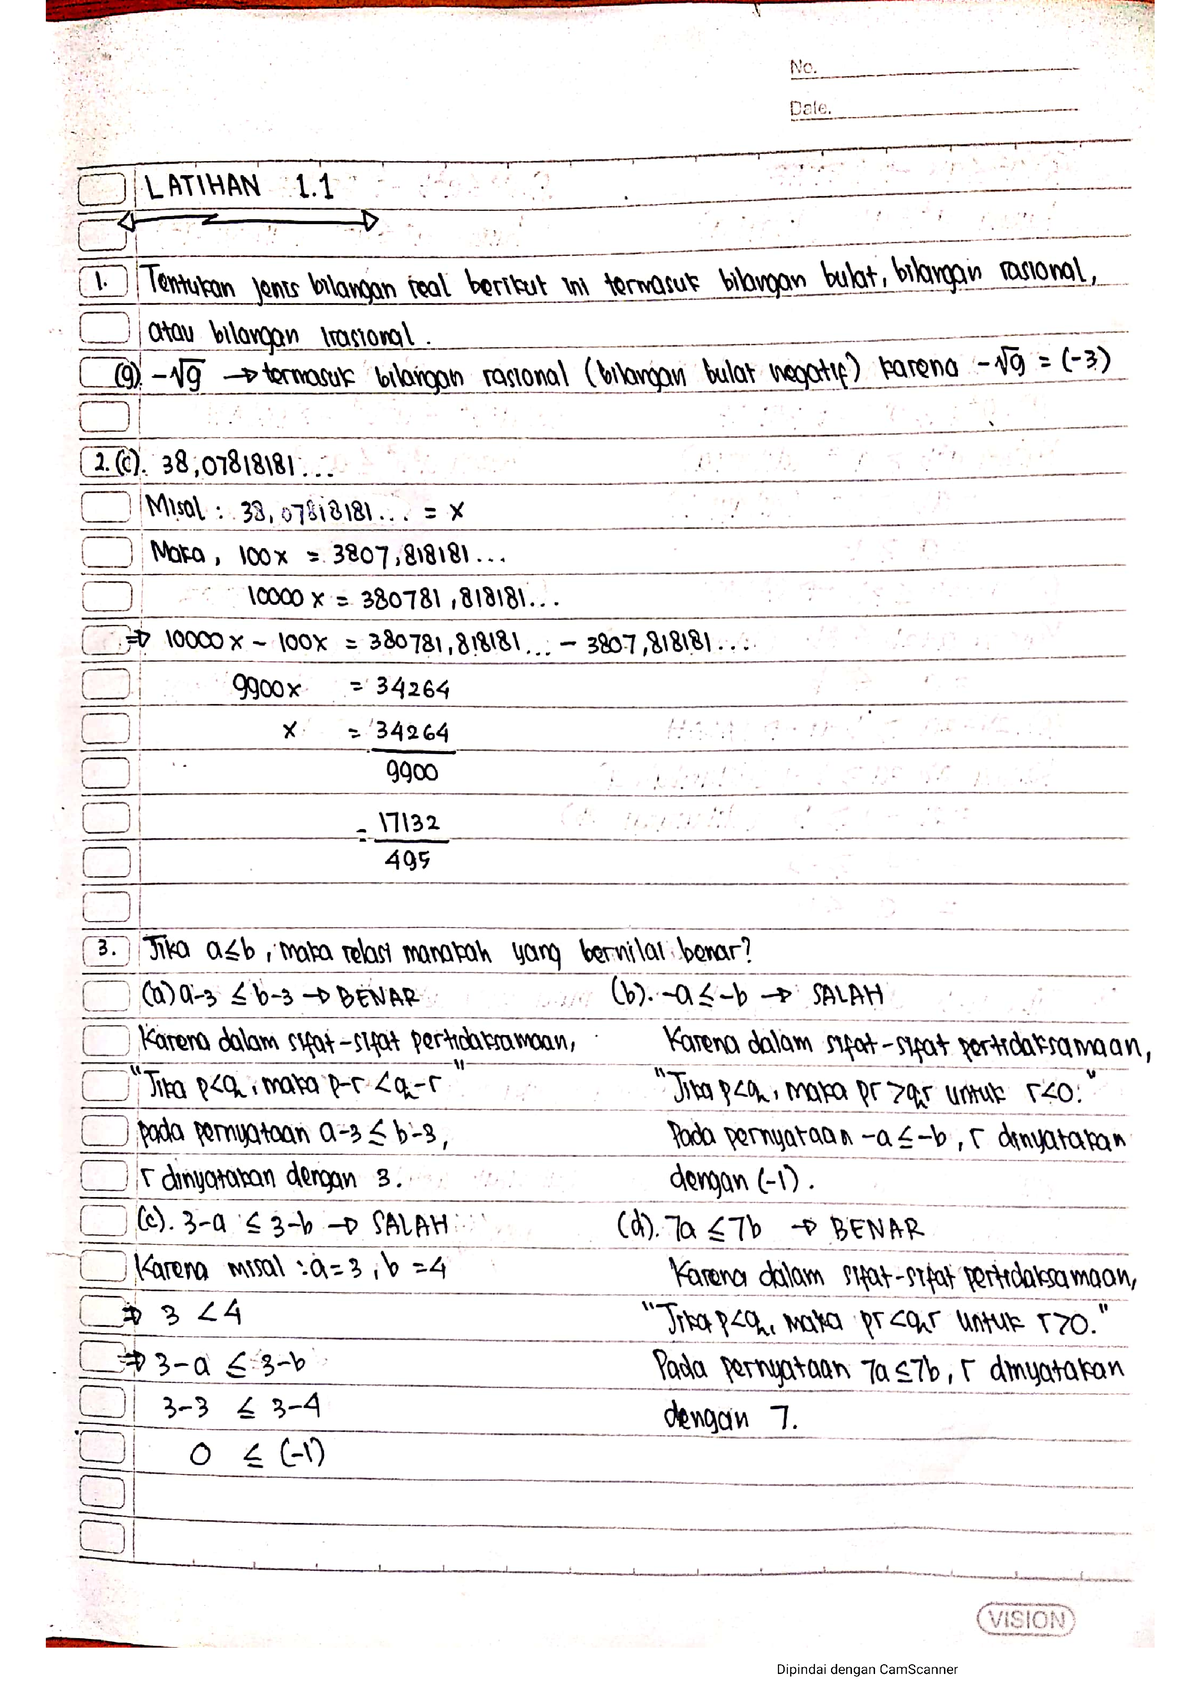 No.
Date.
LATIHAN 1.1
1. Tentukan jenis bilangan real berikut ini termasuk bilangan bulat, bilangan rasional,
atau bilangan irasional.
(g). -√9 → termasuk bilangan rasional (bilangan bulat negatif) karena -√9 = (-3)
2. (c). 38,07818181...
Misal : 38,07818181... = x
Maka, 100x = 3807,818181...
10000x = 380781,818181...
⇒ 10000x - 100x = 380781,818181... - 3807,818181...
9900x = 34264
x = 34264
9900
= 17132
495
3. Jika a≤b, maka relasi manakah yang bernilai benar?
(a) a-3 ≤ b-3 → BENAR
Karena dalam sifat-sifat pertidaksamaan,
"Jika p<q, maka p-r<q-r"
pada pernyataan a-3 ≤ b-3,
r dinyatakan dengan 3.
(b). -a ≤ -b → SALAH
Karena dalam sifat-sifat pertidaksamaan,
"Jika p<q, maka pr >qr untuk r<0."
Pada pernyataan -a≤-b, r dinyatakan
dengan (-1).
(c). 3-a ≤ 3-b → SALAH
Karena misal : a=3, b=4
⇒ 3 < 4
⇒ 3-a ≤ 3-b
3-3 ≤ 3-4
0 ≤ (-1)
(d). 7a ≤7b → BENAR
Karena dalam sifat-sifat pertidaksamaan,
"Jika p<q, maka pr<qr untuk r>0."
Pada pernyataan 7a≤7b, r dinyatakan
dengan 7.
VISION
Dipindai dengan CamScanner